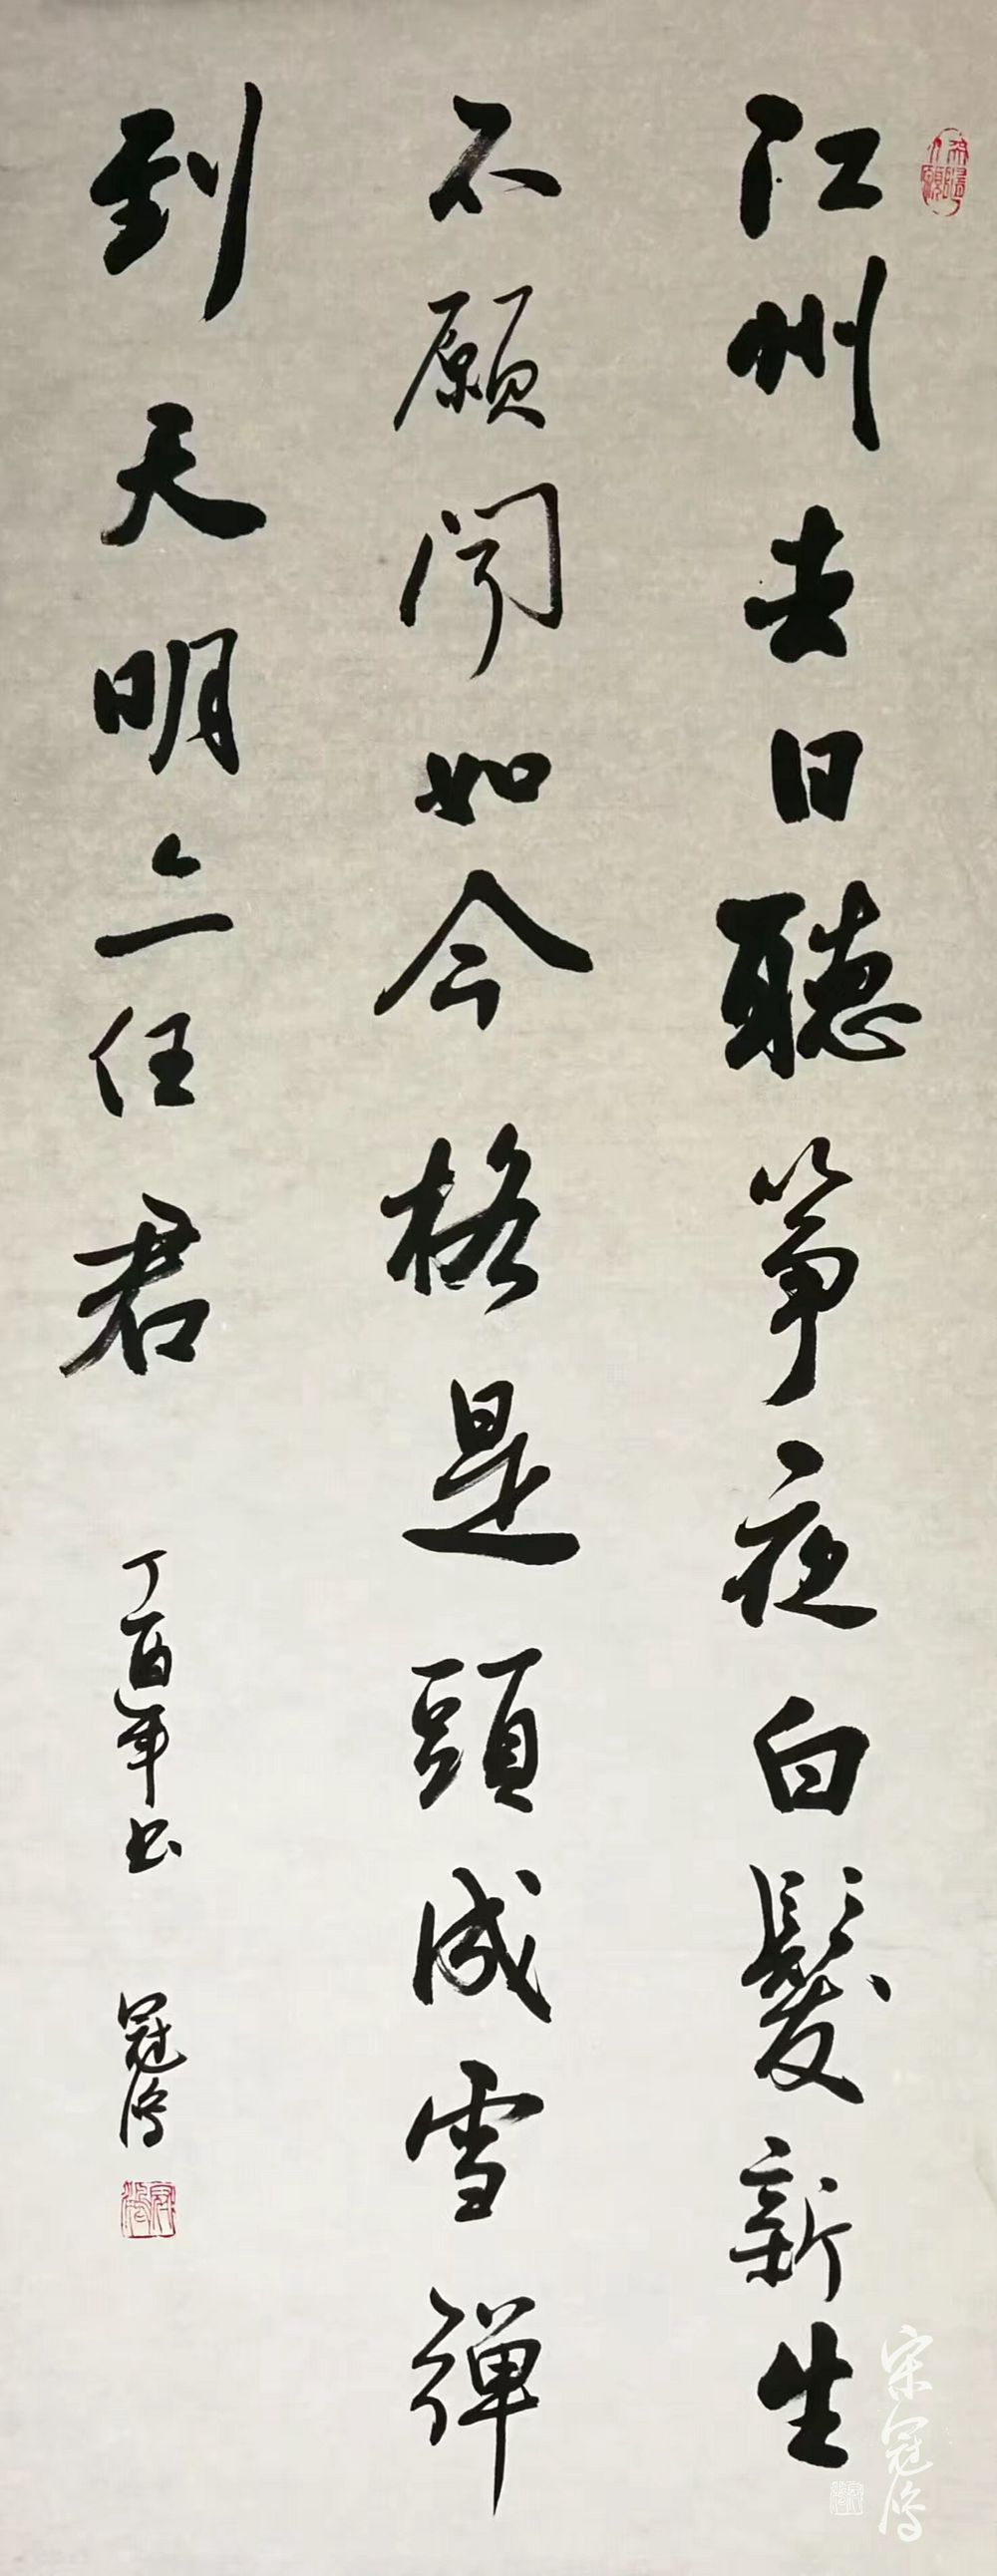 江州去日聽筝夜白髮新生
不願聞如今格是頭成雪彈
到天明亦任君
丁酉年书
冠濤
宋冠濤